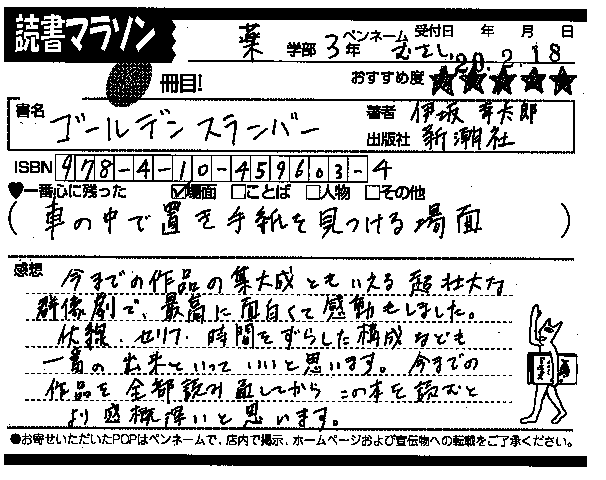 読書マラソン
薬 学部 3年 ペンネーム むさし 受付日 年 月 日
20.2.18
冊目! おすすめ度 ★★★★★
書名 ゴールデンスランバー 著者 伊坂 幸太郎
出版社 新潮社
ISBN 978-4-10-459603-4
♥一番心に残った ☑場面 □ことば □人物 □その他
(車の中で置き手紙を見つける場面)
感想
今までの作品の集大成ともいえる超壮大な
群像劇で、最高に面白くて感動もしました。
伏線、セリフ、時間をずらした構成なども
一番の出来といっていいと思います。今までの
作品を全部読み直してからこの本を読むと
より感慨深いと思います。
●お寄せいただいたPOPはペンネームで、店内で掲示、ホームページおよび宣伝物への転載をご了承ください。